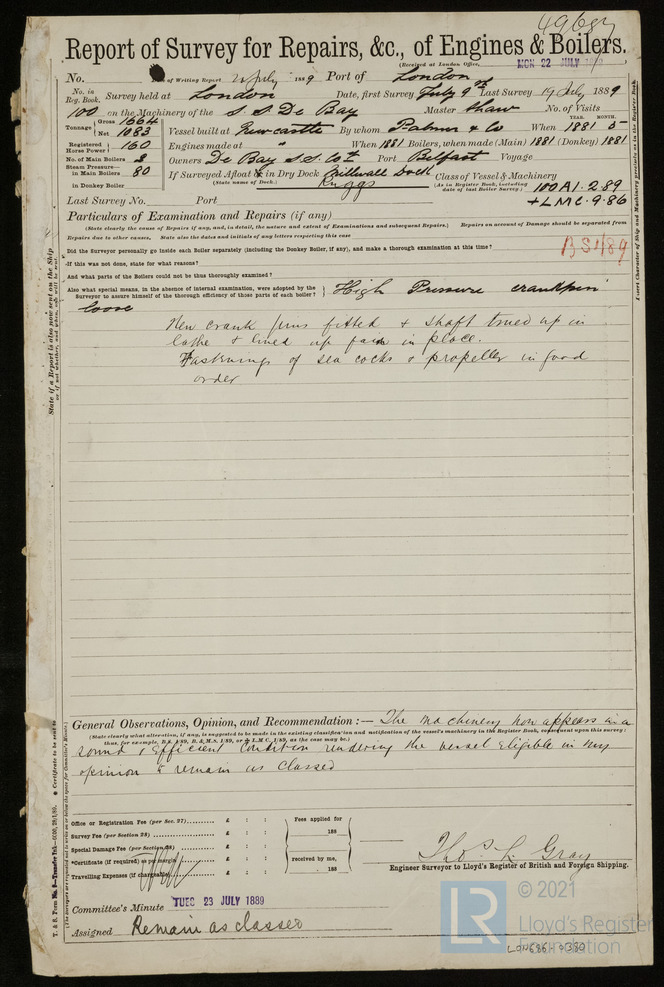 49687
Report of Survey for Repairs, &c., of Engines & Boilers.
(Received at London Office, MON 22 JULY 1889
No. of Writing Report July 1889 Port of London
No. in Reg. Book. Survey held at London Date, first Survey July 9th Last Survey 19 July 1889
100 on the Machinery of the S.S. De Bay Master Shaw No. of Visits
Tonnage Gross 1664 Net 1083 Vessel built at Newcastle By whom Palmer & Co When 1881 YEAR. MONTH. 5
Registered Horse Power 160 Engines made at " When 1881 Boilers, when made (Main) 1881 (Donkey) 1881
No. of Main Boilers 2 Owners De Bay S.S. Co Ltd Port Belfast Voyage
Steam Pressure— in Main Boilers 80 If Surveyed Afloat or in Dry Dock Millwall Dock Class of Vessel & Machinery
in Donkey Boiler (State name of Dock.) Knggs (As in Register Book, including date of last Boiler Survey) 100A1.2.89
Last Survey No. Port +LMC.9.86
Particulars of Examination and Repairs (if any)
(State clearly the cause of Repairs if any, and, in detail, the nature and extent of Examinations and subsequent Repairs.) Repairs on account of Damage should be separated from
Repairs due to other causes, State also the dates and initials of any letters respecting this case
Did the Surveyor personally go inside each Boiler separately (including the Donkey Boiler, if any), and make a thorough examination at this time?
BS1/89
If this was not done, state for what reasons?
And what parts of the Boilers could not be thus thoroughly examined?
Also what special means, in the absence of internal examination, were adopted by the Surveyor to assure himself of the thorough efficiency of those parts of each boiler? High Pressure crankpin
loose
New crank pins fitted & shaft trued up in
lathe & lined up fair in place.
Fastenings of sea cocks & propeller in good
order
General Observations, Opinion, and Recommendation :— The machinery now appears in a
(State clearly what alteration, if any, is suggested to be made in the existing classification and notification of the vessel's machinery in the Register Book, consequent upon this survey:
thus, for example, B.S. 1/89, B. & M.S. 1/89, or + L.M.C. 1/89, as the case may be.)
sound & efficient condition rendering the vessel eligible in my
opinion to remain as classed
Office or Registration Fee (per Sec. 27) £ : :
Survey Fee (per Section 28) £ : :
Special Damage Fee (per Section 28) £ : :
*Certificate (if required) as per margin £ : :
Travelling Expenses (if chargeable) £ : :
Fees applied for
188
received by me,
188
Thos. L. Gray
Engineer Surveyor to Lloyd's Register of British and Foreign Shipping.
Committee's Minute TUES 23 JULY 1889
Assigned Remain as classed
LR © 2021
Lloyd's Register
Foundation
LON686-0380
State if a Report is also now sent on the Ship
Insert Character of Ship and Machinery precisely as in the Register Book.